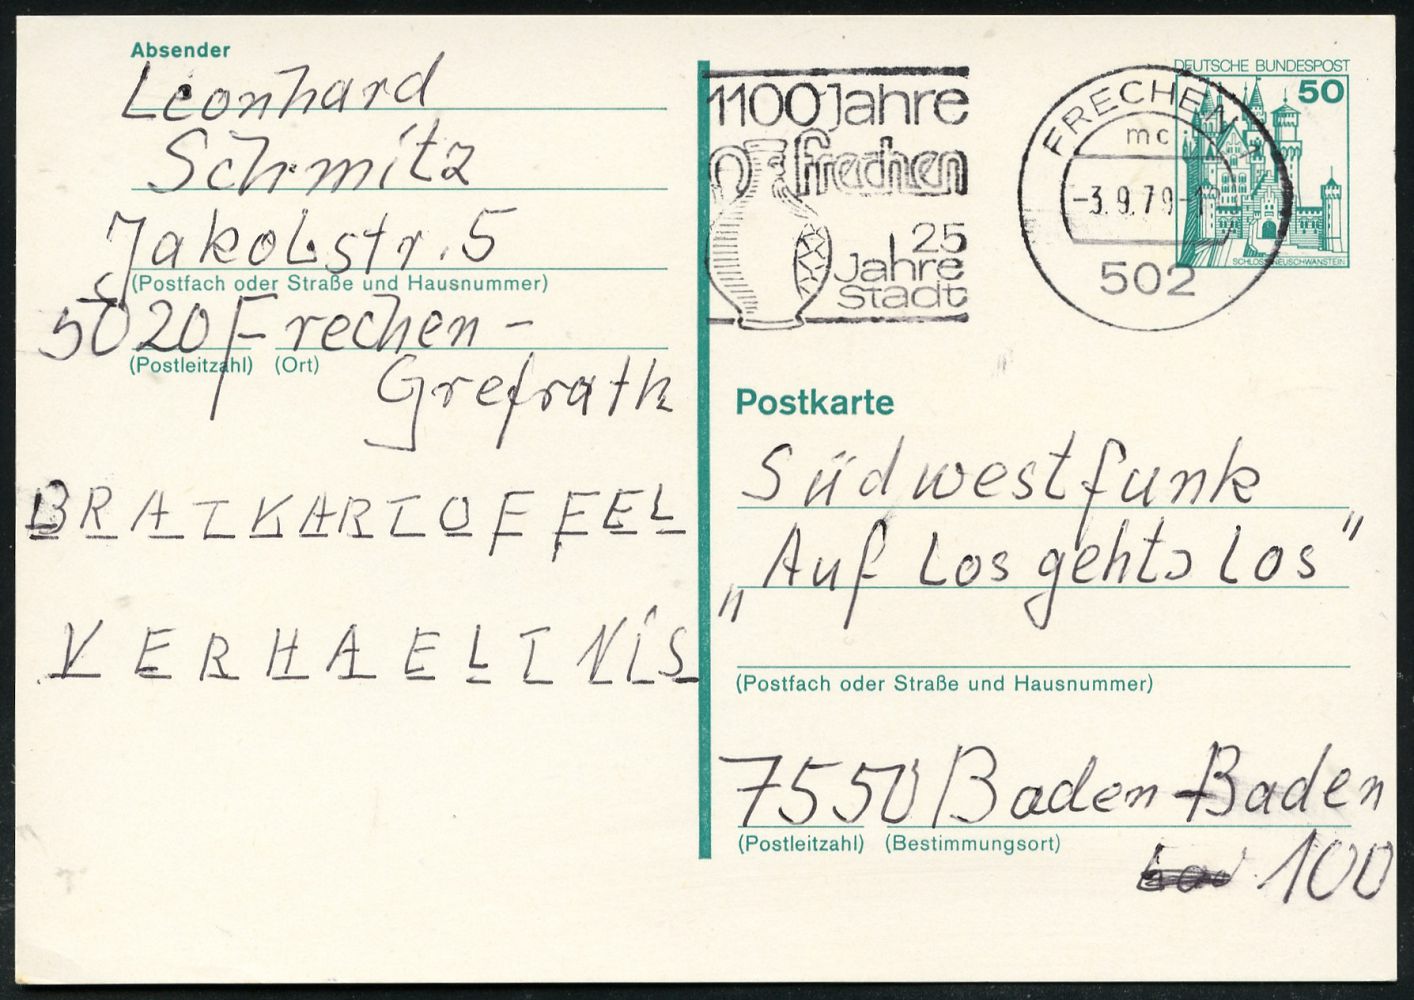 Absender
Leonhard
Schmitz
Jakobstr. 5
(Postfach oder Straße und Hausnummer)
5020 Frechen-
(Postleitzahl) (Ort)
Grefrath
BRATKARTOFFEL
VERHAELTNIS
1100 Jahre
frechen
25
Jahre
Stadt
FRECHEN 
mc
-3.9.79-
502
DEUTSCHE BUNDESPOST
50
SCHLOSS NEUSCHWANSTEIN
Postkarte
Südwestfunk
„Auf Los gehts los"
(Postfach oder Straße und Hausnummer)
7550 Baden-Baden
(Postleitzahl) (Bestimmungsort)
100